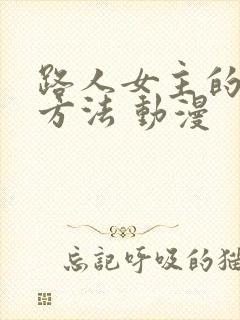 路人女主的
方法 動漫
忘記呼吸的猫